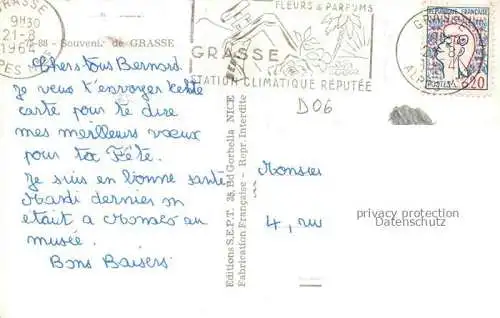 GRASSE
9H30
21-8
196
ALPES M
72-88 - Souvenir de GRASSE
FLEURS & PARFUMS
GRASSE
STATION CLIMATIQUE RÉPUTÉE
REPUBLIQUE FRANÇAISE
POSTES
0,20
D06
Chers tous Bernard.
Je veux t'envoyer cette
carte pour te dire
mes meilleurs vœux
pour ta Fête.
Je suis en bonne santé
Mardi dernier on
etait a Monaco au
musée.
Bons Baisers
Editions S.E.P.T. 35, Bd Gorbella NICE
Fabrication Française - Repr. Interdite
Monsieur
4, rue
privacy protection
Datenschutz